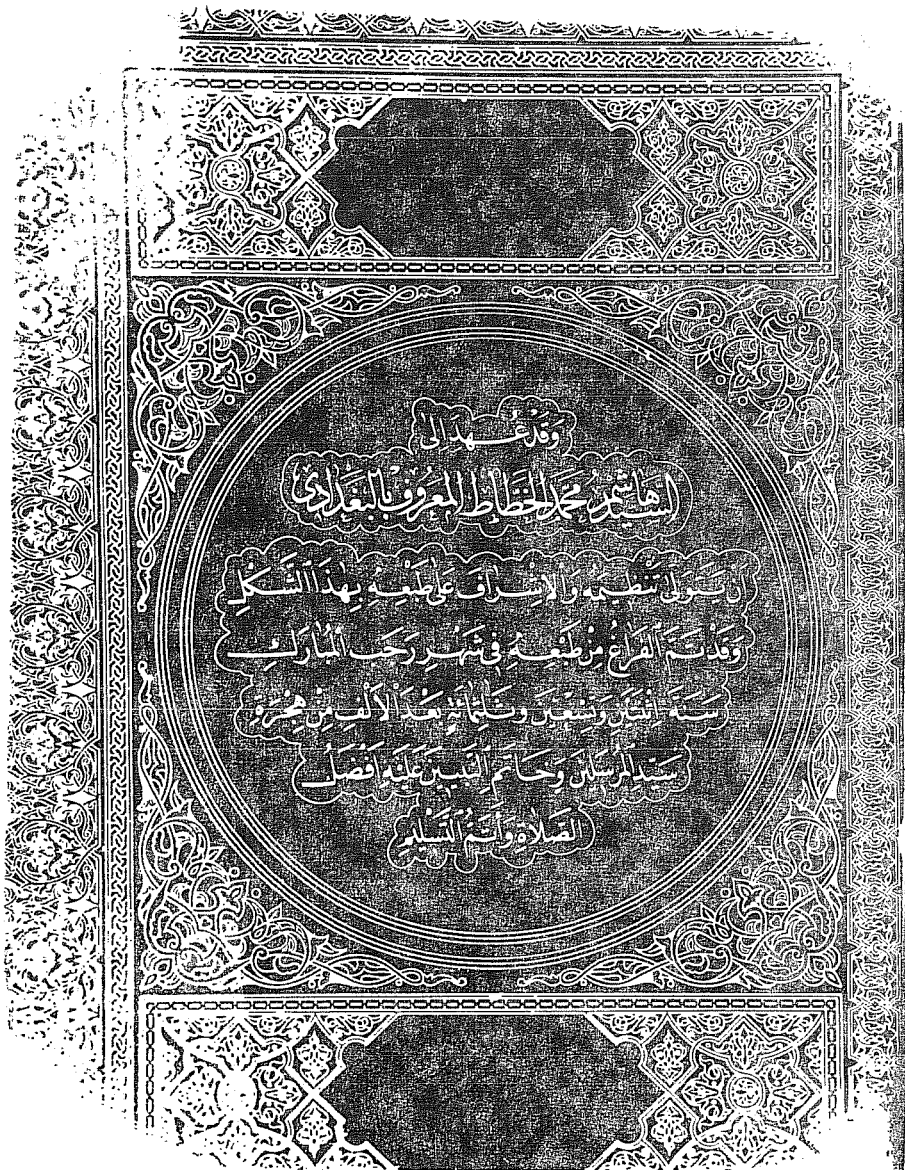 وَقَدْ عُهِدَ إِلَى
السَّيِّدِ هَاشِمِ مُحَمَّدِ الْخَطَّاطِ الْمَعْرُوفِ بِالْبَغْدَادِيِّ
أَنْ يَتَوَلَّى تَنْظِيمَهُ وَالْإِشْرَافَ عَلَى طَبْعِهِ بِهَذَا الشَّكْلِ
وَقَدْ تَمَّ الْفَرَاغُ مِنْ طَبْعِهِ فِي شَهْرِ رَجَبِ الْمُبَارَكِ
سَنَةَ اثْنَتَيْنِ وَتِسْعِينَ وَثَلِثِمِائَةٍ بَعْدَ الْأَلْفِ مِنْ هِجْرَةِ
سَيِّدِ الْمُرْسَلِينَ وَخَاتَمِ النَّبِيِّينَ عَلَيْهِ أَفْضَلُ
الصَّلَاةِ وَأَتَمُّ التَّسْلِيمِ